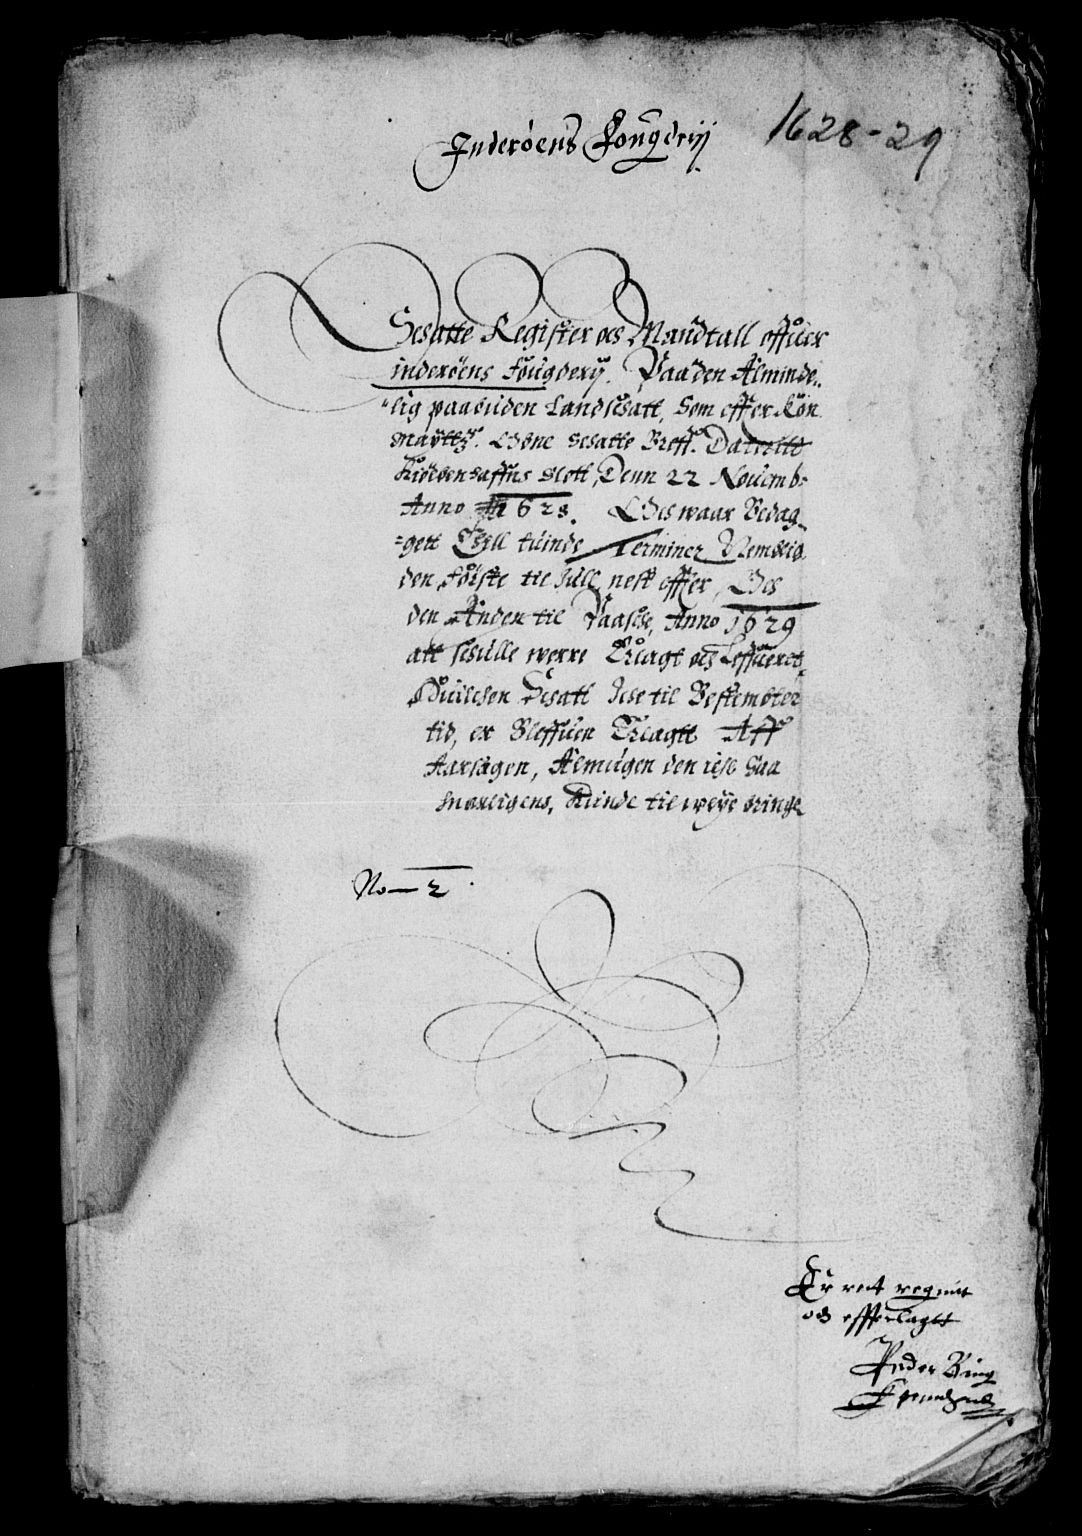 Inderöens Fougderij
1628-29
Schatte Register och Mandtall offuer
inderöens Fougderij. Paa den Alminde-
lig paabuden Landschatt, Som effter Kon
maÿttz. Schatte Breff. Daterett
Kiøbenhaffns Slott, Denn 22 Nouemb:
Anno 1628. Och waar Bedag-
gett Till tuinde Terminer Nemblig
den Förste til Jull nest effter, Och
den Anden til Paasche, Anno 1629
att schulle werre Erlagt och Leffueret
Huilchen Schatt Icke til Bestembter
tid, er Bleffuen Erlagtt Aff
Aarsagen, Almugen den icke Saa
snarligens, Kunde til weye bringe
No 2
Er ret
och efferlagtt
Peder